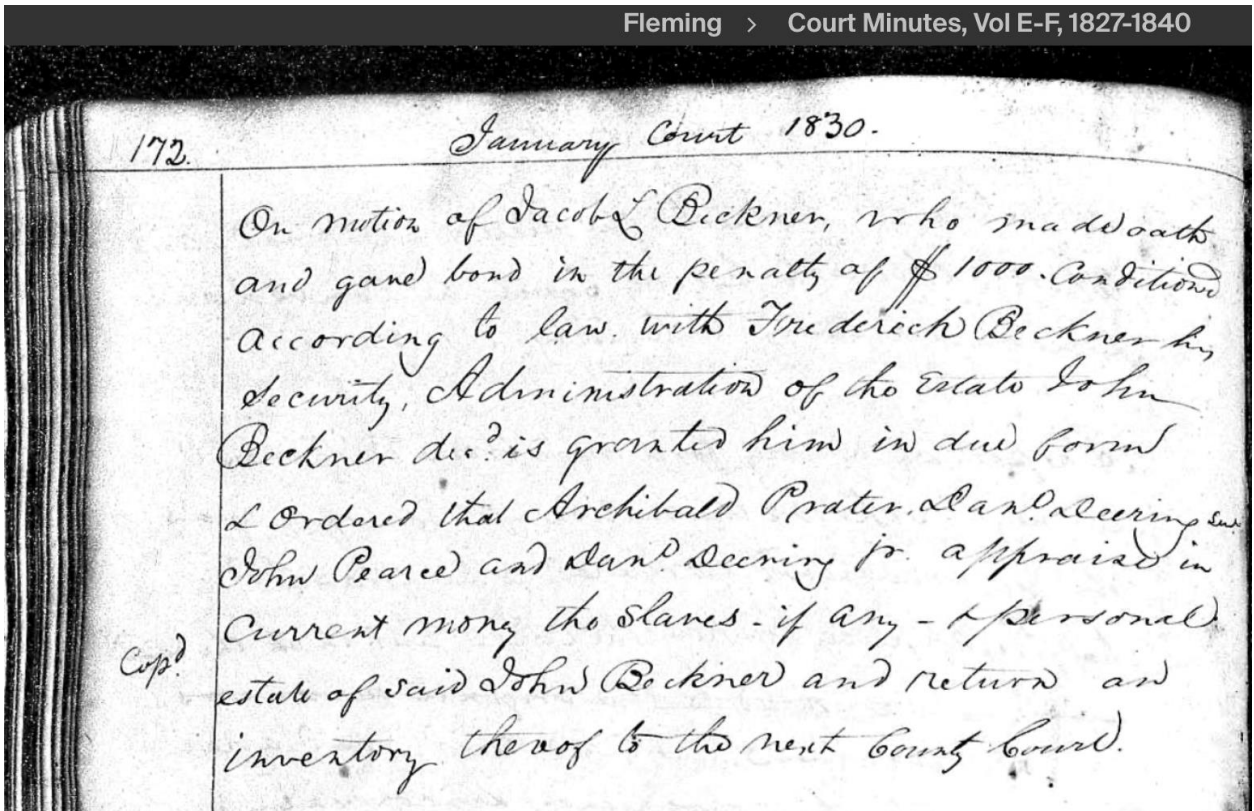 Fleming > Court Minutes, Vol E-F, 1827-1840
172. January Court 1830.
On motion of Jacob L Beckner, who made oath
and gave bond in the penalty of $1000. Conditioned
according to law. with Frederick Beckner his
Security, Administration of the Estate John
Beckner decd. is granted him in due form
& Ordered that Archibald Prater. Danl. Deering Senr.
John Pearce and Danl Deering jr. appraise in
Current money the Slaves - if any - & personal
Copd. estate of said John Beckner and return an
inventory thereof to the next County Court.